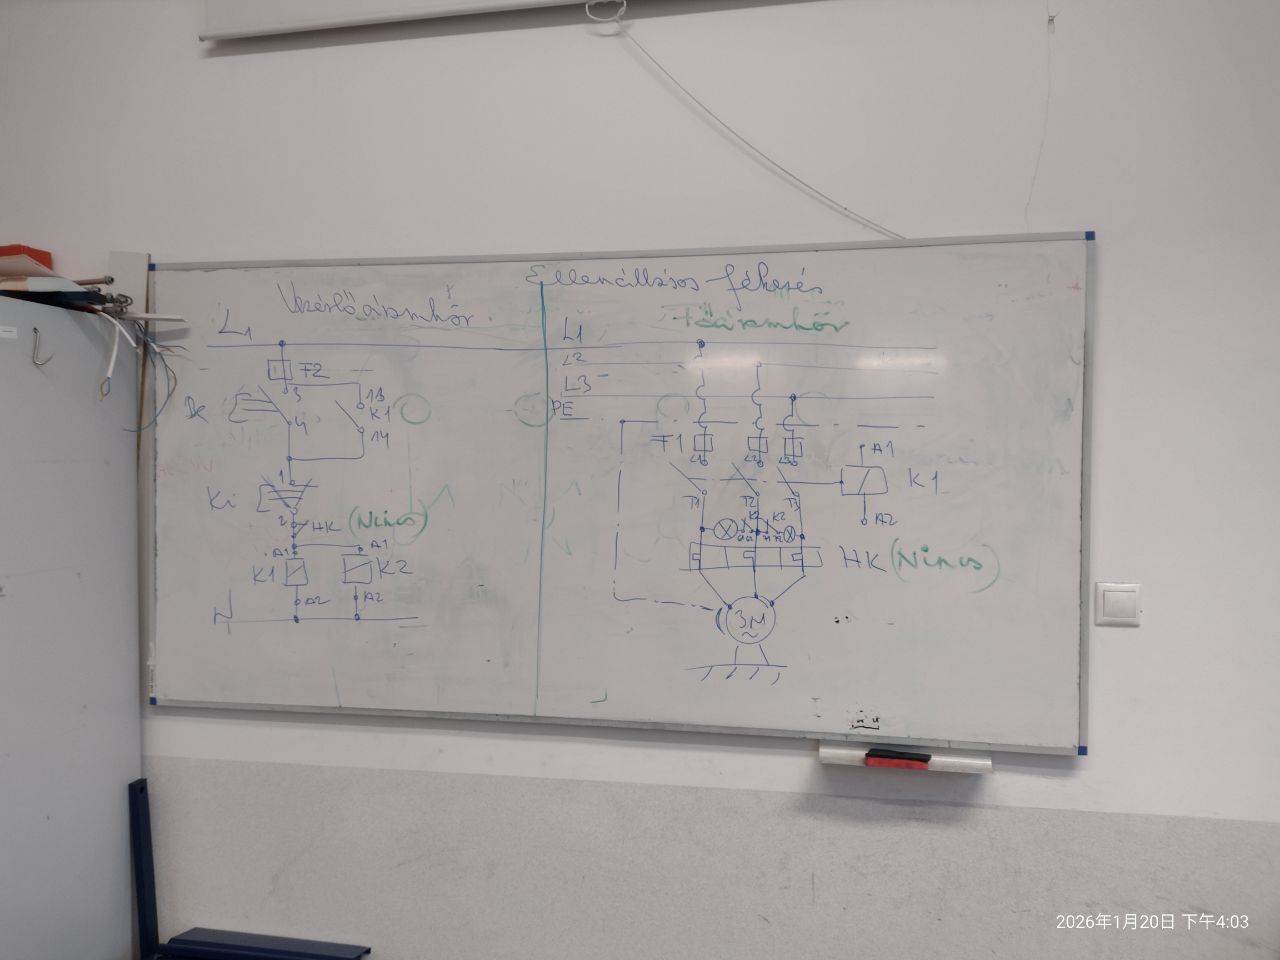 Ellenállásos fékezés
Vezérlőáramkör
Főáramkör
L1
F2
3
4
13
K1
14
1
Ki
2
HK (Nincs)
A1
A1
K1
K2
A2
A2
N
L1
L2
L3
PE
F1
L1
L2
L3
A1
K1
T1
T2
T3
A2
K2
K2
HK (Nincs)
3M
~
2026年1月20日 下午4:03